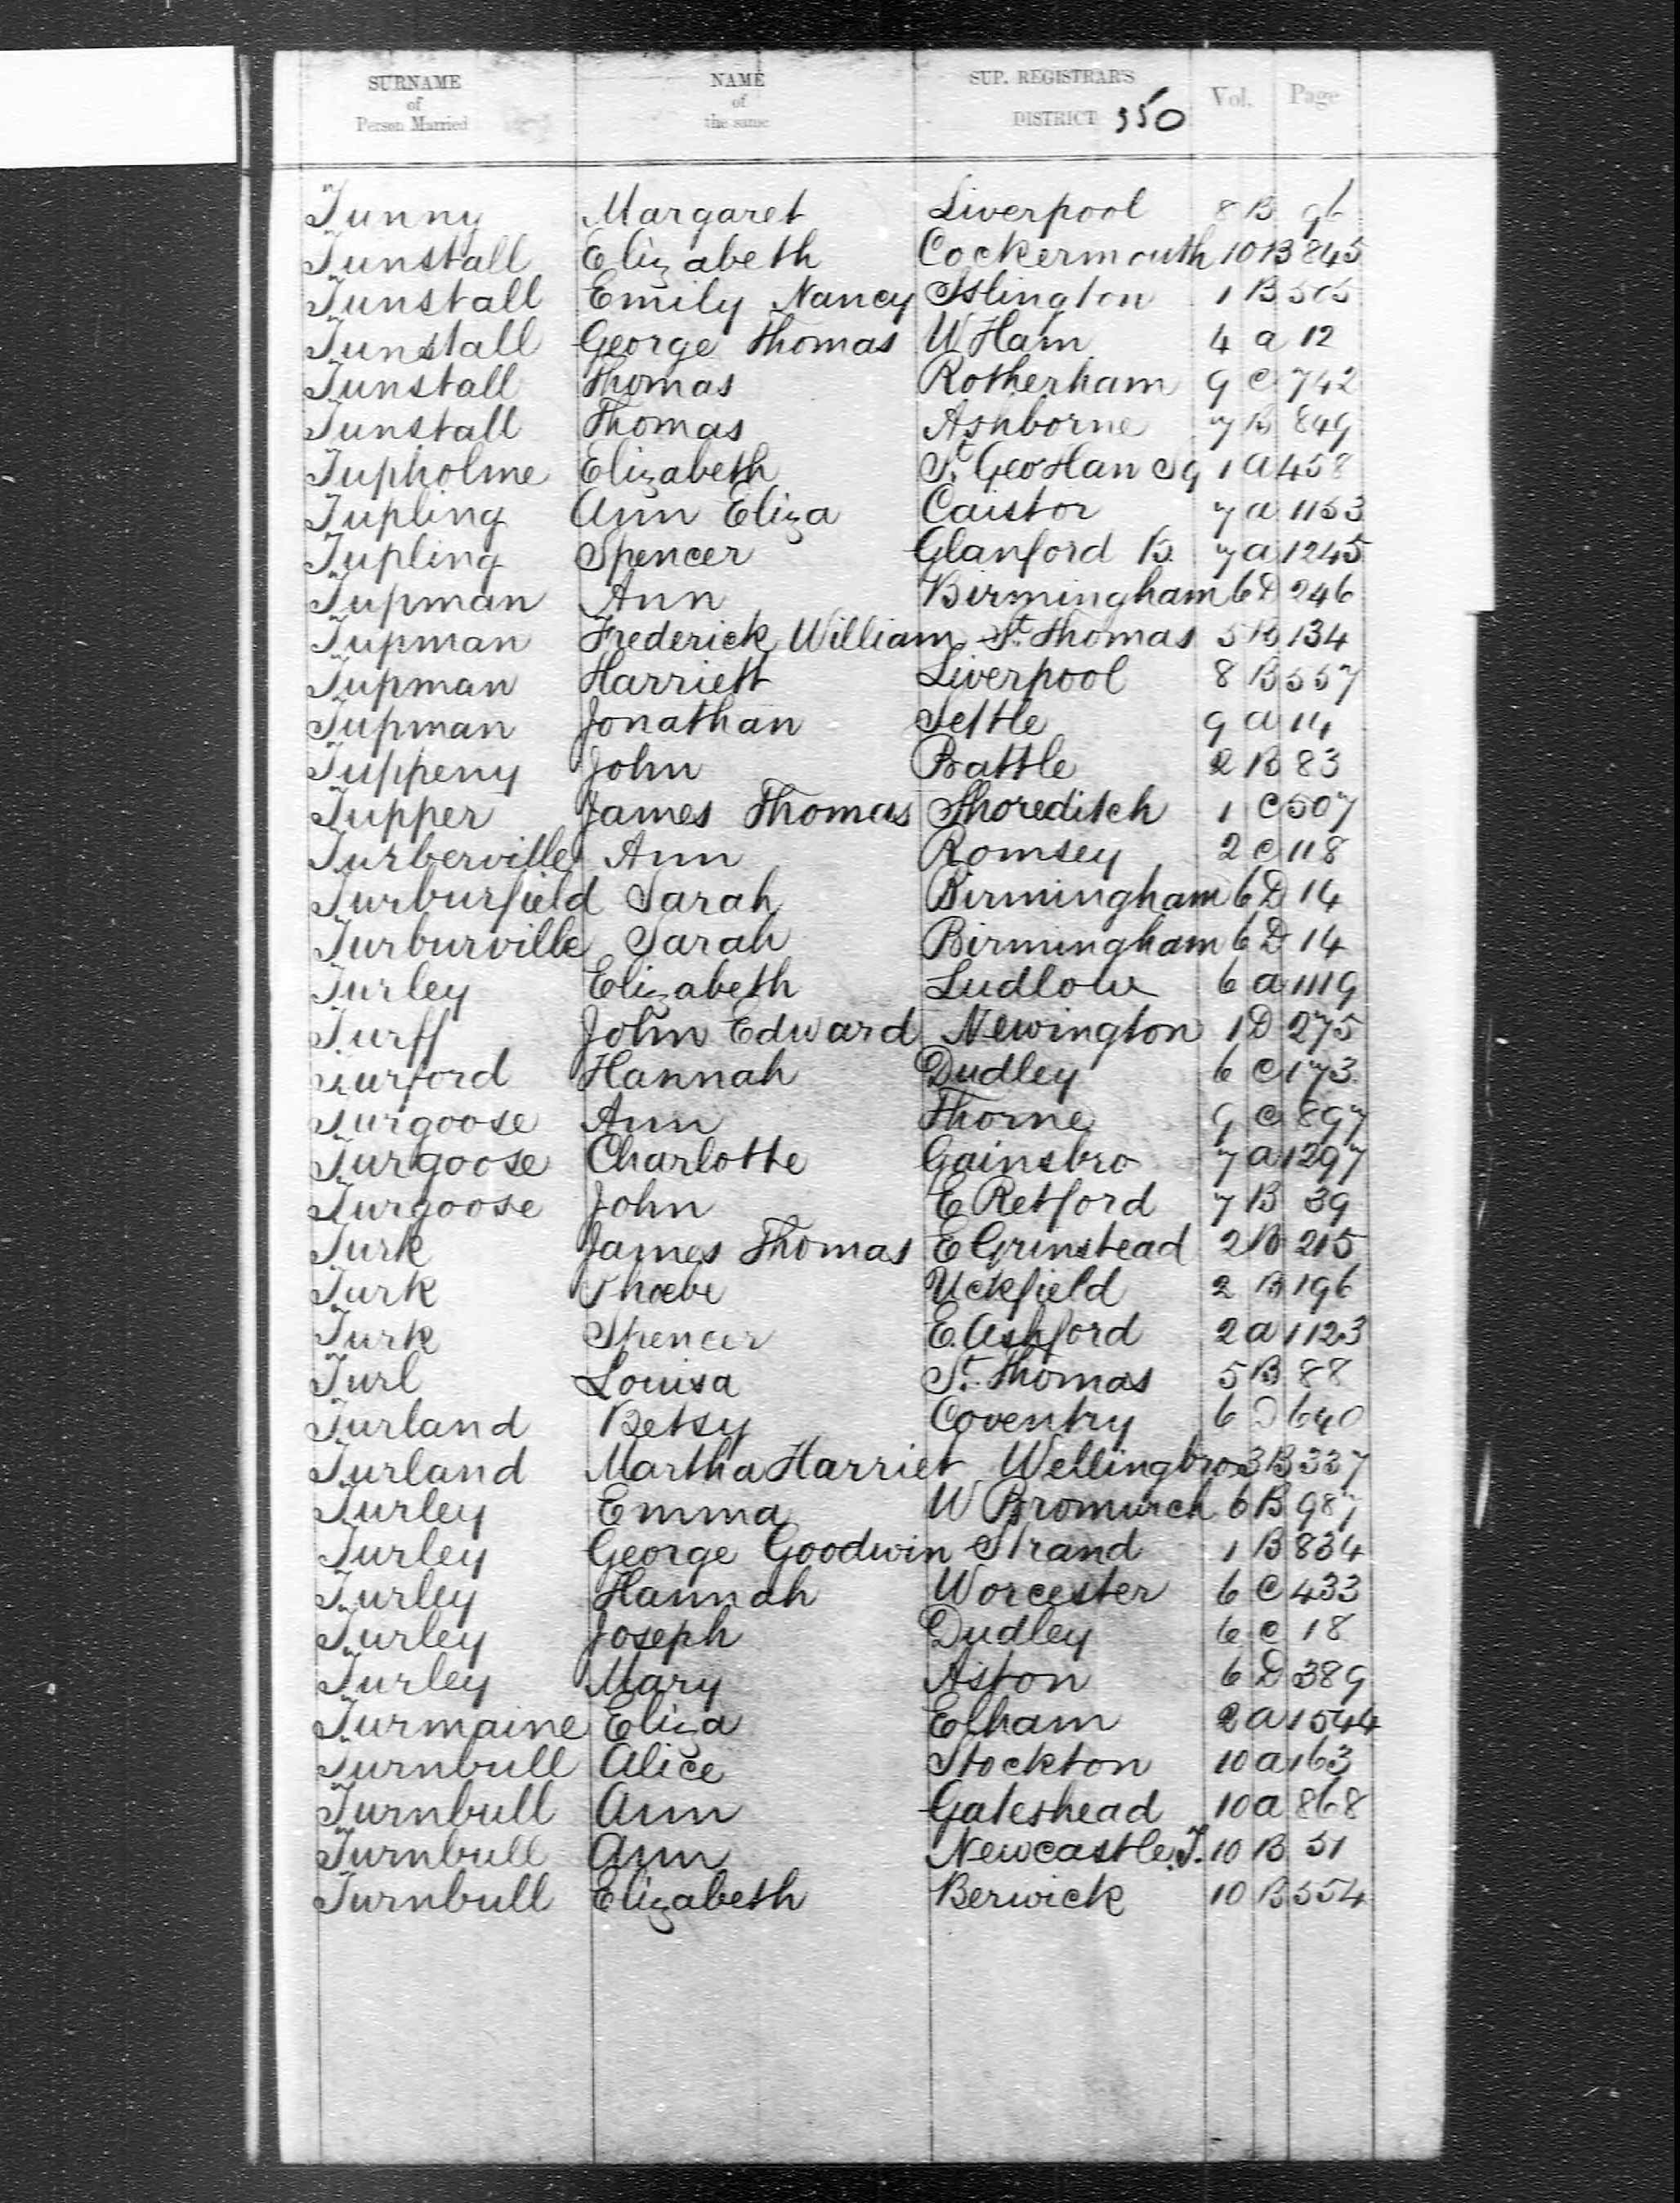 SURNAME of Person Married NAME of the same SUP. REGISTRAR'S DISTRICT 350 Vol. Page
Tunny Margaret Liverpool 8 B 96
Tunstall Elizabeth Cockermouth 10 B 845
Tunstall Emily Nancy Islington 1 B 505
Tunstall George Thomas W Ham 4 a 12
Tunstall Thomas Rotherham 9 c 742
Tunstall Thomas Ashborne 7 B 849
Tupholme Elizabeth St Geo Han Sq 1 a 458
Tupling Ann Eliza Caistor 7 a 1153
Tupling Spencer Glanford B. 7 a 1245
Tupman Ann Birmingham 6 D 246
Tupman Frederick William St Thomas 5 B 134
Tupman Harriett Liverpool 8 B 557
Tupman Jonathan Settle 9 a 14
Tuppeny John Battle 2 B 83
Tupper James Thomas Shoreditch 1 C 507
Turberville Ann Romsey 2 c 118
Turburfield Sarah Birmingham 6 D 14
Turburville Sarah Birmingham 6 D 14
Turley Elizabeth Ludlow 6 a 1119
Turff John Edward Newington 1 D 275
Turford Hannah Dudley 6 C 173
Turgoose Ann Thorne 9 c 897
Turgoose Charlotte Gainsbro 7 a 1297
Turgoose John E Retford 7 B 39
Turk James Thomas E Grinstead 2 B 215
Turk Phoebe Uckfield 2 B 196
Turk Spencer E. Ashford 2 a 1123
Turl Louisa St. Thomas 5 B 88
Turland Betsy Coventry 6 D 640
Turland Martha Harriet Wellingbro 3 B 337
Turley Emma W Bromwich 6 B 987
Turley George Goodwin Strand 1 B 834
Turley Hannah Worcester 6 C 433
Turley Joseph Dudley 6 c 18
Turley Mary Aston 6 D 389
Turmaine Eliza Elham 2 a 1544
Turnbull Alice Stockton 10 a 163
Turnbull Ann Gateshead 10 a 868
Turnbull Ann Newcastle T. 10 B 51
Turnbull Elizabeth Berwick 10 B 554